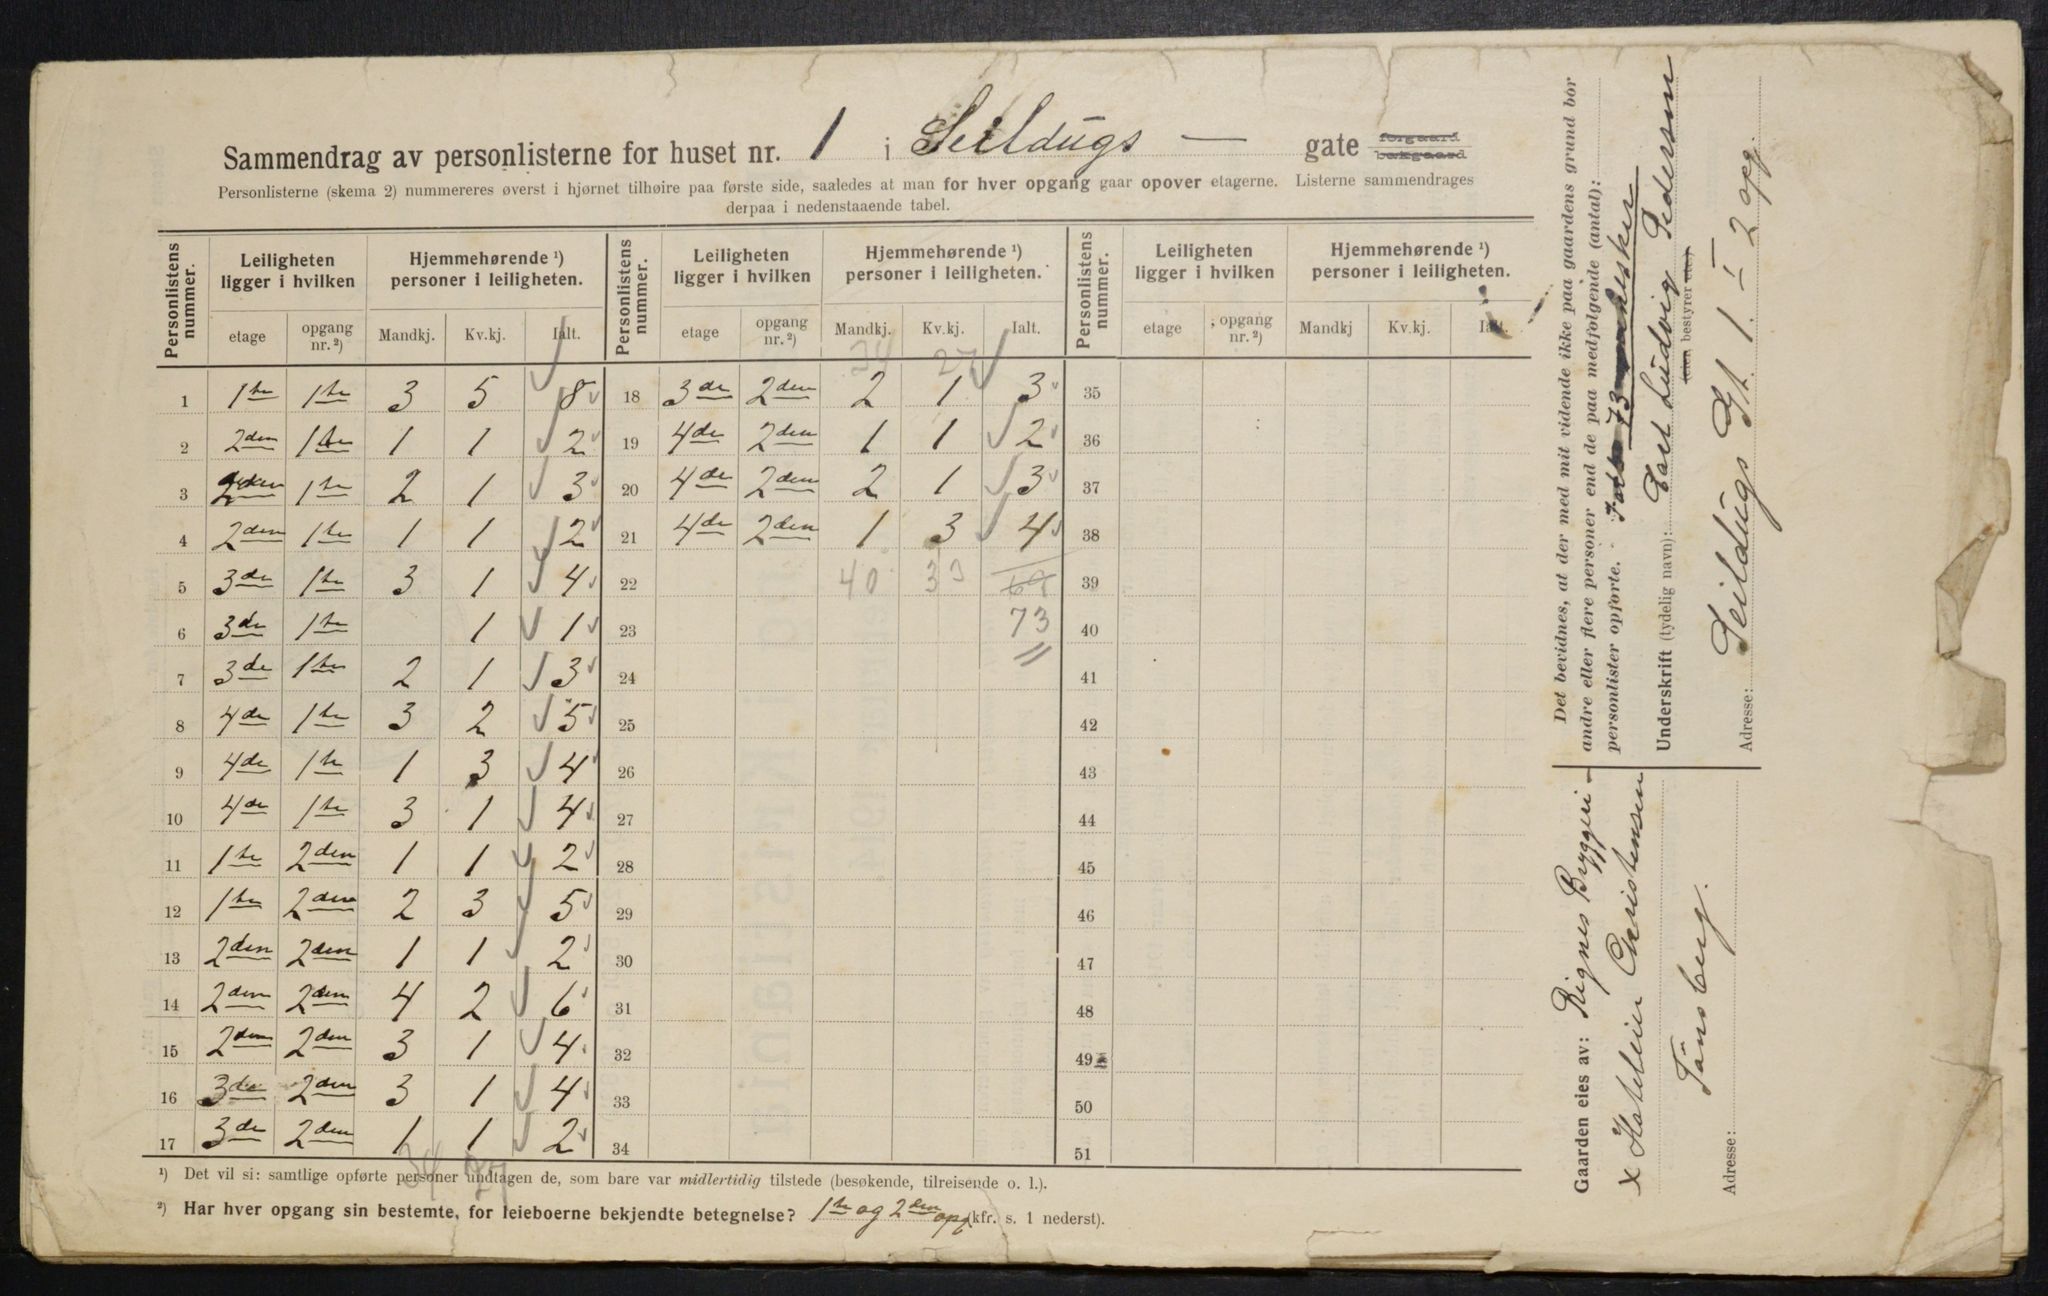 Sammendrag av personlisterne for huset nr. 1 i Seildugs — gate forgaard bakgaard
Personlisterne (skema 2) nummereres øverst i hjørnet tilhøire paa første side, saaledes at man for hver opgang gaar opover etagerne. Listerne sammendrages
derpaa i nedenstaaende tabel.
Personlistens nummer. Leiligheten ligger i hvilken Hjemmehørende ¹) personer i leiligheten. Personlistens nummer. Leiligheten ligger i hvilken Hjemmehørende ¹) personer i leiligheten. Personlistens nummer. Leiligheten ligger i hvilken Hjemmehørende ¹) personer i leiligheten.
etage opgang nr. ²) Mandkj. Kv.kj. Ialt. etage opgang nr. ²) Mandkj. Kv.kj. Ialt. etage opgang nr. ²) Mandkj Kv.kj. Ialt.
34 27
1 1ste 1ste 3 5 8 18 3de 2den 2 1 3 35
2 2den 1ste 1 1 2 19 4de 2den 1 1 2 36
3 2den 1ste 2 1 3 20 4de 2den 2 1 3 37
4 2den 1ste 1 1 2 21 4de 2den 1 3 4 38
5 3de 1ste 3 1 4 22 40 33 39
6 3de 1ste 1 1 23 73 40
7 3de 1ste 2 1 3 24 41
8 4de 1ste 3 2 5 25 42
9 4de 1ste 1 3 4 26 43
10 4de 1ste 3 1 4 27 44
11 1ste 2den 1 1 2 28 45
12 1ste 2den 2 3 5 29 46
13 2den 2den 1 1 2 30 47
14 2den 2den 4 2 6 31 48
15 2den 2den 3 1 4 32 49
16 3de 2den 3 1 4 33 50
17 3de 2den 1 1 2 34 51
34 27
¹) Det vil si: samtlige opførte personer undtagen de, som bare var midlertidig tilstede (besøkende, tilreisende o. l.).
²) Har hver opgang sin bestemte, for leieboerne bekjendte betegnelse? 1ste og 2den opg (kfr. s. 1 nederst).
Det bevidnes, at der med mit vidende ikke paa gaardens grund bor
andre eller flere personer end de paa medfølgende (antal):
personlister opførte. 73 mennesker
Underskrift (tydelig navn): Carl Ludvig Pedersen
eier bestyrer
Adresse: Seildugs Gt. 1. I 2 opg.
Gaarden eies av: Rignes Byggeri -
x Hoteleier Christensen
Tønsberg.
Adresse: